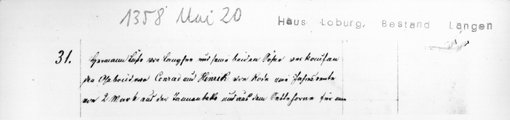 1358 Mai 20
Haus Loburg, Bestand Langen
31. Hermann von Langhen und seine beiden Söhne verkaufen
den Gebrüdern Conrad und Henrik von eine Jahresrente
von 2 Mark aus der und aus dem für eine